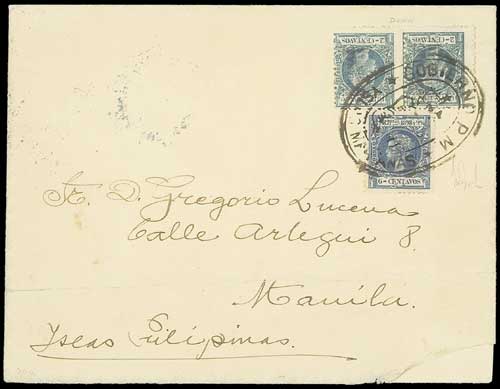 2 CENTAVOS
2 CENTAVOS
6 CENTAVOS
Sr. D. Gregorio Lucena
Calle Arlegui 8.
Manila.
Islas Filipinas.